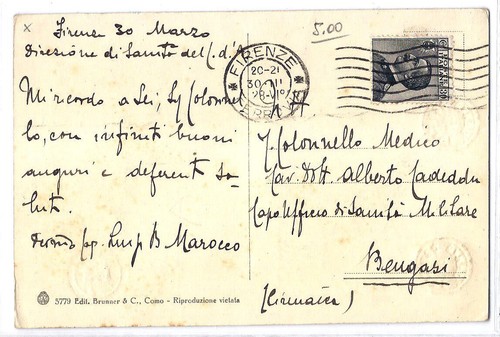 x
5.00
Firenze 30 Marzo
Direzione di Sanità del C. d'A
Mi ricordo a Lei, Sig Colonnel-
lo, con infiniti buoni
auguri e deferenti sa-
luti.
Cap. Luigi B Marocco
FIRENZE
20-21
30 III
FERROVIA
Colonnello Medico
Cav. Dott. Alberto Cadeddu
Capo Ufficio di Sanità Militare
Bengasi
(Cirenaica)
5779 Edit. Brunner & C., Como - Riproduzione vietata